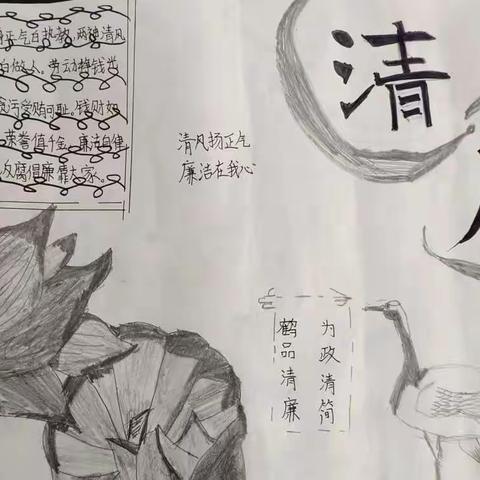 正气自 两袖清风
白做人。劳动挣钱光
贪污受贿可耻。钱财如
荣誉值千金,廉洁自律
反腐倡廉靠大家。
清风扬正气
廉洁在我心
清
为政清简
鹤品清廉